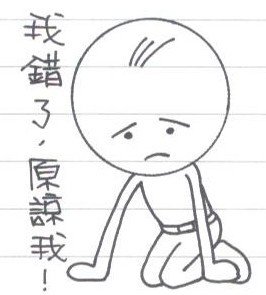 我錯了，原諒我！